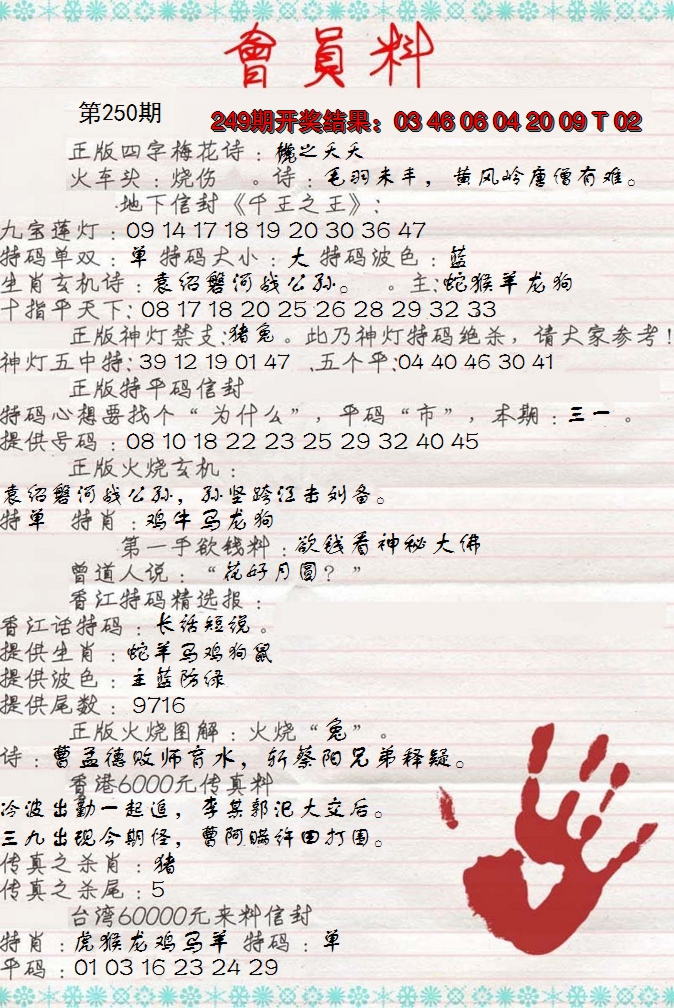 會員料
第250期
249期开奖结果：03 46 06 04 20 09 T 02
正版四字梅花诗：桃之夭夭
火车头：烧伤 。诗：毛羽未丰，黄风岭唐僧有难。
地下信封《千王之王》：
九宝莲灯：09 14 17 18 19 20 30 36 47
特码单双：单 特码大小：大 特码波色：蓝
生肖玄机诗：袁绍磐河战公孙。 。主：蛇猴羊龙狗
十指平天下：08 17 18 20 25 26 28 29 32 33
正版神灯禁支：猪兔。此乃神灯特码绝杀，请大家参考！
神灯五中特：39 12 19 01 47 .五个平：04 40 46 30 41
正版特平码信封
特码心想要找个“为什么”，平码“市”，本期：三一 。
提供号码：08 10 18 22 23 25 29 32 40 45
正版火烧玄机：
袁绍磐河战公孙，孙坚跨江击刘备。
特单 特肖：鸡牛马龙狗
第一手欲钱料：欲钱看神秘大佛
曾道人说：“花好月圆？”
香江特码精选报：
香江话特码：长话短说。
提供生肖：蛇羊马鸡狗鼠
提供波色：主蓝防绿
提供尾数：9716
正版火烧图解：火烧“兔”。
诗：曹孟德败师育水，斩蔡阳兄弟释疑。
香港6000元传真料
冷波出勤一起追，李某郭汜大交后。
三九出现今期怪，曹阿瞒许田打围。
传真之杀肖：猪
传真之杀尾：5
台湾60000元来料信封
特肖：虎猴龙鸡马羊 特码：单
平码：01 03 16 23 24 29